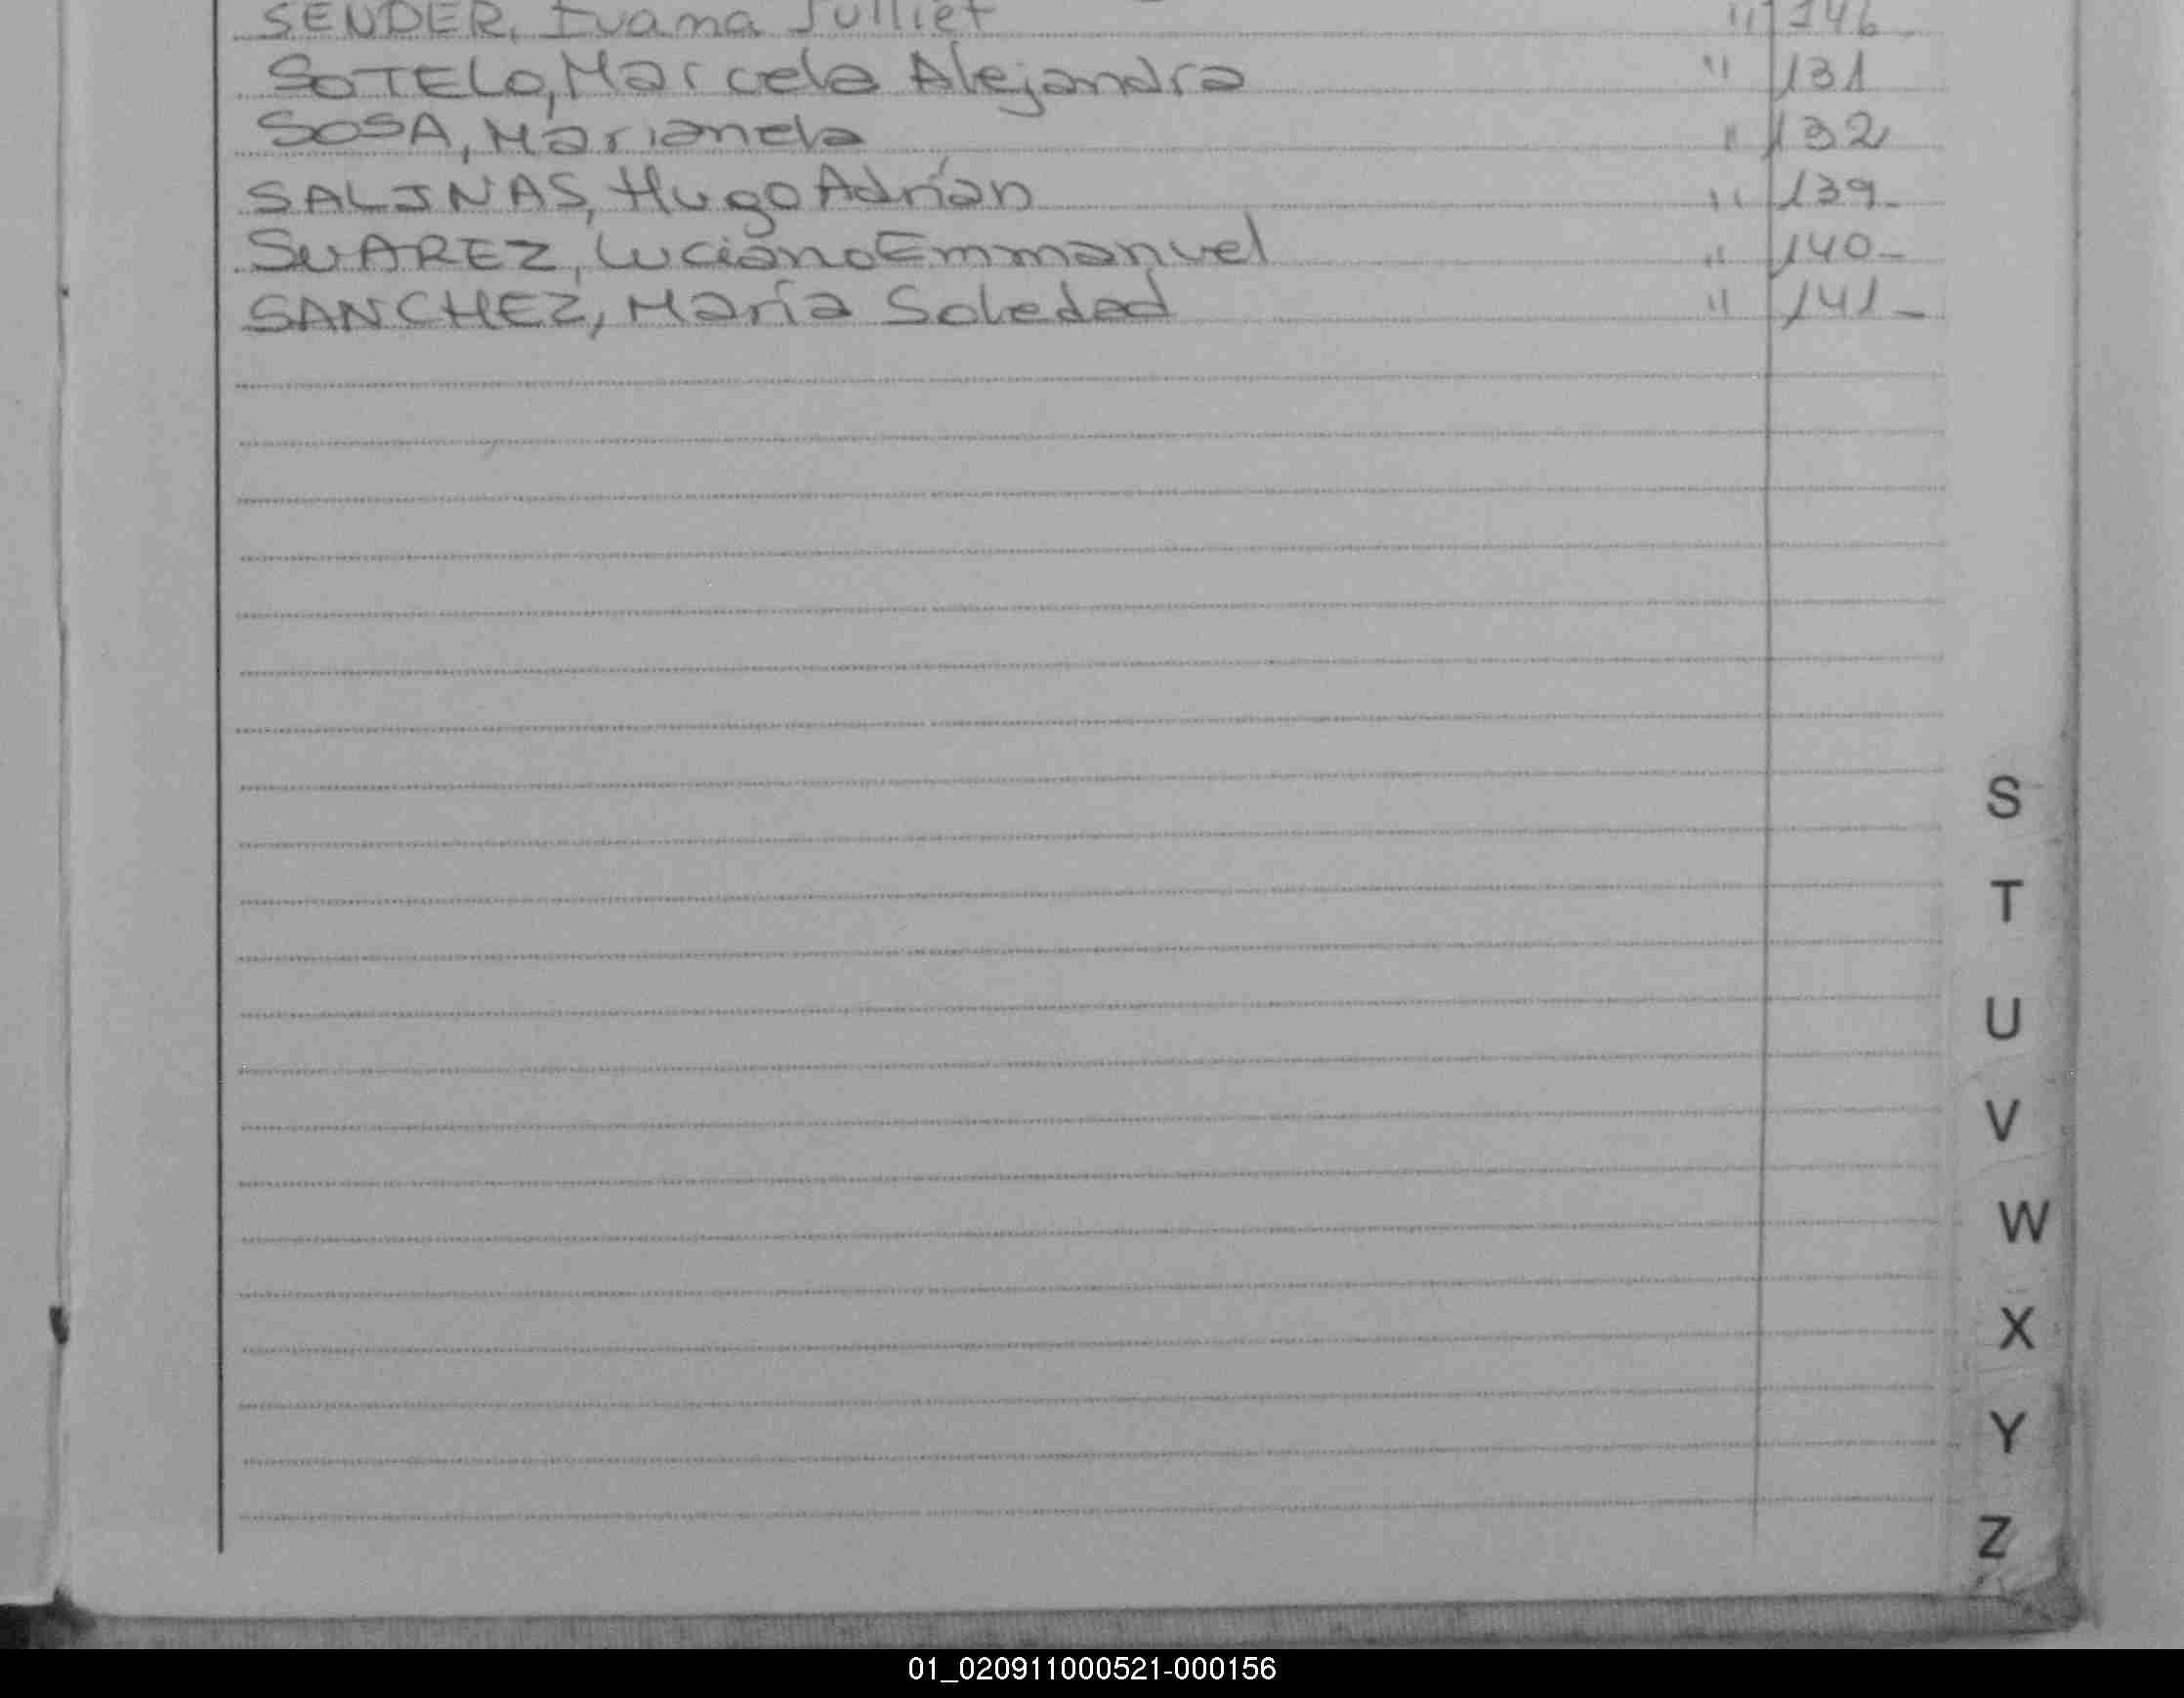 SENDER, Ivana Julliet " 146
SOTELO, Marcela Alejandra " 131
SOSA, Marianela " 132
SALINAS, Hugo Adrían " 139-
SUAREZ, Luciano Emmanuel " 140-
SANCHEZ, María Soledad " 141-
S
T
U
V
W
X
Y
Z
01_020911000521-000156